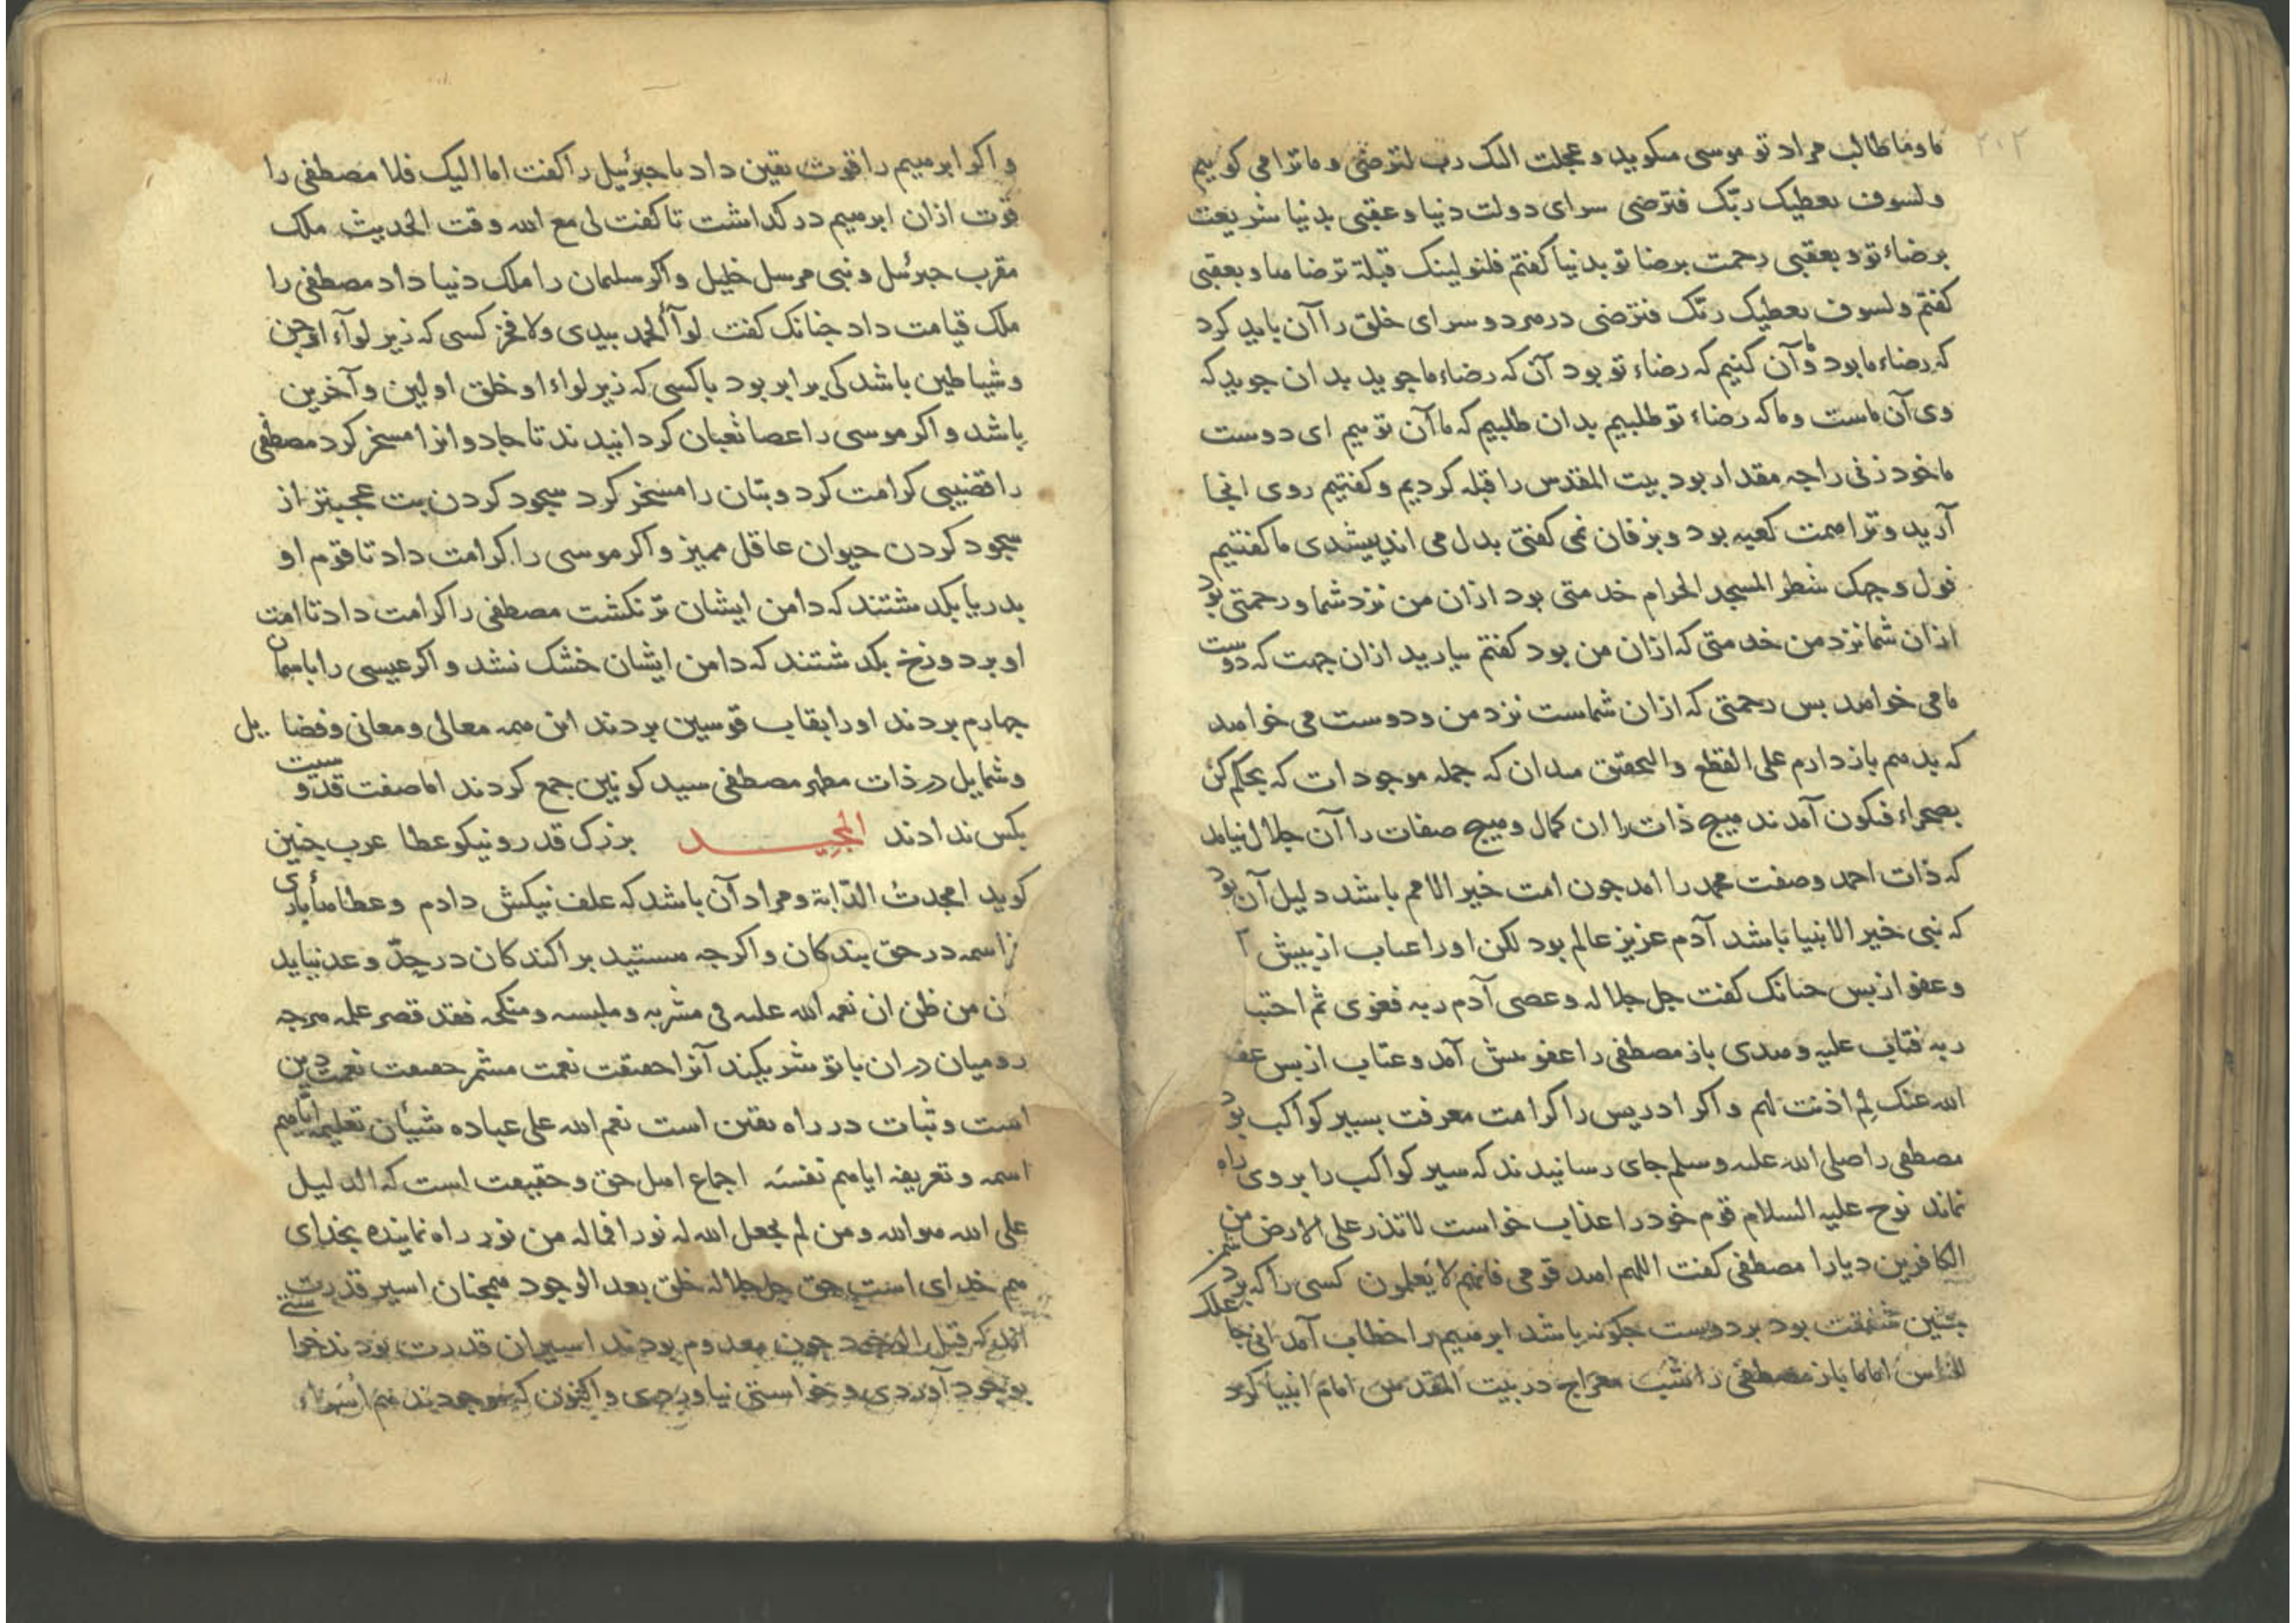 ۲۰۲
ما و ما طالب مراد تو موسی میکوید و عجلت الیک رب لترضی و ما ترا می کوییم
ولسوف یعطیک ربّک فترضی سرای دولت دنیا و عقبی بدنیا شریعت
برضاء تو و بعقبی رحمت برضا تو بدنیا کفتم فلنولینک قبلة ترضاها و بعقبی
کفتم ولسوف یعطیک ربّک فترضی در هر دو سرای خلق را آن باید کرد
که رضاء ما بود و ما آن کنیم که رضاء تو بود آن که رضاء ما جوید بدان جوید که
وی آن ماست و ما که رضاء تو طلبیم بدان طلبیم که ما آن توییم ای دوست
ما خود زنی را جه مقدار بود بیت المقدس را قبله کردیم و کفتیم روی انجا
آرید و ترا همت کعبه بود و بزفان نمی کفتی بدل می اندیشیدی ما کفتیم
فول وجهک شطر المسجد الحرام خدمتی بود ازان من نزد شما و رحمتی بود
ازان شما نزد من خدمتی که ازان من بود کفتم بیارید ازان جهت که دوست
ما می خواهد بس رحمتی که ازان شماست نزد من و دوست می خواهد
که بدهم باز دارم علی القطع والتحقیق میدان که جمله موجودات که بحکم کن
بصحراء فیکون آمدند هیج ذات را ان کمال و هیج صفات را آن جلال نیامد
که ذات احمد و صفت محمد را امد جون امت خیر الامم باشد دلیل آن بود
که نبی خیر الانبیا باشد آدم عزیز عالم بود لکن او را عتاب از بیش آ
و عفو از بس جنانک کفت جل جلاله و عصی آدم ربه فغوی ثم اجتبا
ربه فتاب علیه و هدی باز مصطفی را عفو بیش آمد و عتاب از بس عفا
الله عنک لِمَ اذنت لهم و اکر ادریس را کرامت معرفت بسیر کواکب بود
مصطفی را صلی الله علیه و سلم جای رسانیدند که سیر کواکب را بر وی راه
نماند نوح علیه السلام قوم خود را عذاب خواست لا تذر علی الارض من
الکافرین دیارا مصطفی کفت اللهم اهد قومی فانهم لا یعلمون کسی را که بر دشمن
جنین شفقت بود بر دوست جکونه باشد ابرهیم را خطاب آمد انی جاعلک
للناس اماما باز مصطفی را شب معراج در بیت المقدس امام انبیا کرد
و اکر ابرهیم را قوت یقین داد با جبرئیل را کفت اما الیک فلا مصطفی را
قوت ازان ابرهیم در کذاشت تا کفت لی مع الله وقت الحدیث ملک
مقرب جبرئیل و نبی مرسل خلیل و اکر سلیمان را ملک دنیا داد مصطفی را
ملک قیامت داد جنانک کفت لوآ الحمد بیدی ولا فخر کسی که زیر لوآء او جن
و شیاطین باشد کی برابر بود با کسی که زیر لواء او خلق اولین و آخرین
باشد و اکر موسی را عصا ثعبان کردانیدند تا جادوانرا مسخر کرد مصطفی
را قضیبی کرامت کرد و بتان را مسخر کرد سجود کردن بت عجبتر از
سجود کردن حیوان عاقل ممیز و اکر موسی را کرامت داد تا قوم او
بدریا بکذشتند که دامن ایشان تر نکشت مصطفی را کرامت داد تا امت
او بر دوزخ بکذشتند که دامن ایشان خشک نشد و اکر عیسی را باسمان
جهارم بردند او را بقاب قوسین بردند این همه معالی و معانی و فضایل
و شمایل در ذات مطهر مصطفی سید کونین جمع کردند اما صفت قدوسیت
بکس ندادند المجیـــد بزرک قدر و نیکو عطا عرب جنین
کوید امجدت الدّابة و مراد آن باشد که علف نیکش دادم و عطاهاء باری
اسمه در حق بندکان و اکرجه مستفید براکندکان در حدّ و عد نیاید
ن من ظن ان نعم الله علیه فی مشربه و ملبسه و منکحه فقد قصر علمه هرجه
رومیان دران با تو شریکند آنرا حقیقت نعمت مشمر حقیقت نعمت دین
است و ثبات در راه یقین است نعم الله علی عباده شیئان تعلیمه ایاهم
اسمه و تعریفه ایاهم نفسه اجماع اهل حق و حقیقت است که الدلیل
علی الله هو الله و من لم یجعل الله له نورا فما له من نور راه نماینده بخدای
هم خدای است حق جل جلاله خلق بعد الوجود همجنان اسیر قدرت
اند که قبل الوجود جون معدوم بودند اسیران قدرت بودند خواستی
بوجود آوردی و خواستی نیاوردی و اکنون که موجودند هم اسراء